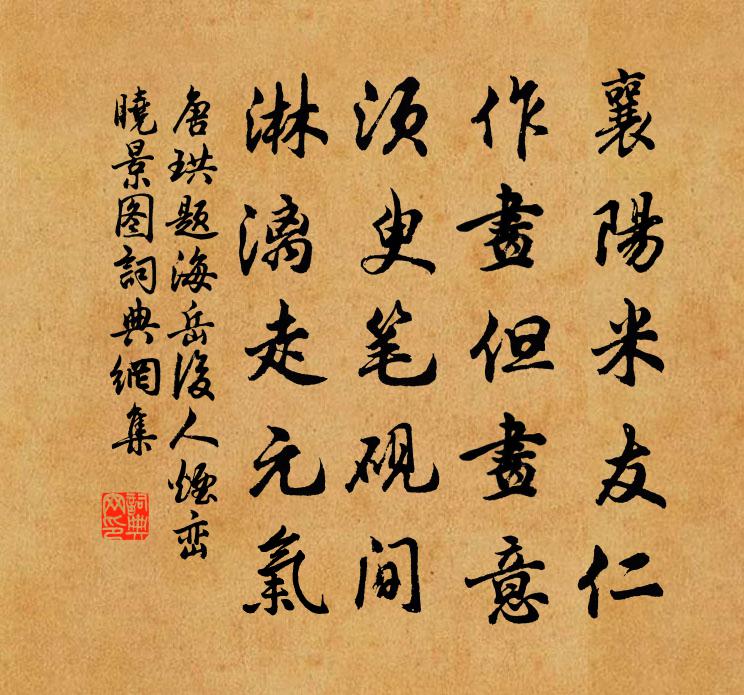 襄陽米友仁
作畫但畫意
須臾笔砚间
淋漓走元氣
唐珙题海岳後人煙峦
曉景图詞典網集
詞典网印